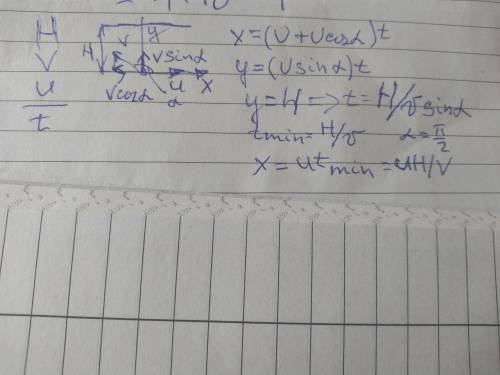 H
V
u
t
H
V
y
Vsinα
vcosα
u
α
X
x=(U+Ucosα)t
y=(Usinα)t
y=H=>t=H/vsinα
tmin=H/v α=π/2
X=utmin=uH/V